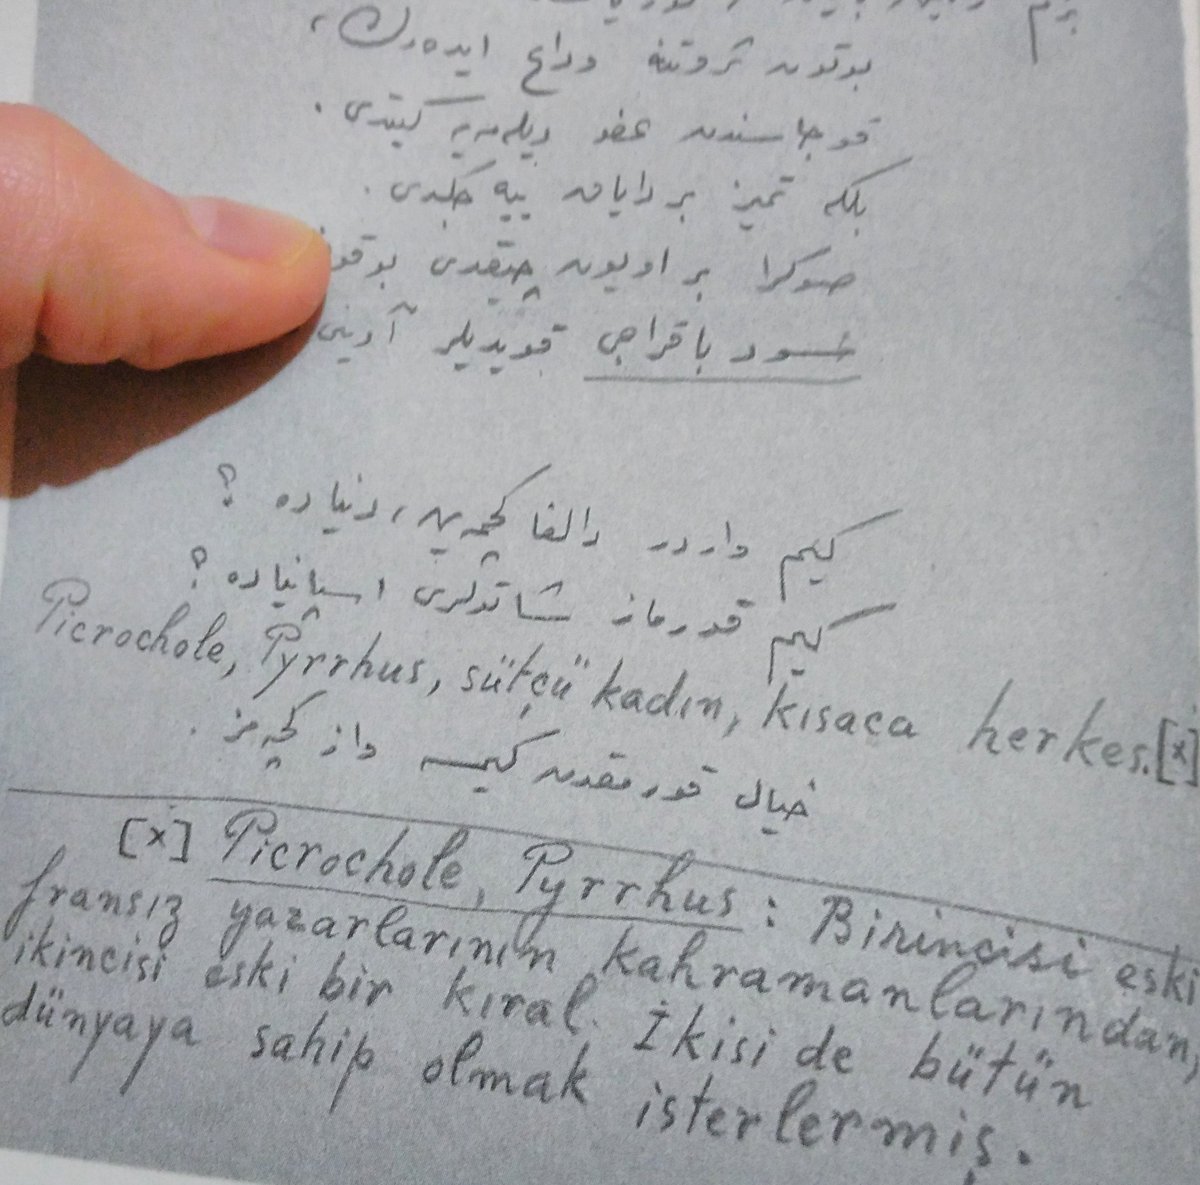 بوتون ثروتنه وداع ایده‌رك،
قوجاسندن عفو دیله‌مه‌یه كیتدی.
بلكه تمیز بر دایاق ییه جكدی.
صوكرا بر اویون چیقدی بوقو
سود باقراجی قویدیلر آدینی
كیم واردر دالغا كچمه‌ین، دنیاده ؟
كیم قورماز شاتولری اسپانیاده ؟
Picrochole, Pyrrhus, sütçü kadın, kısaca herkes.[x]
خیال قورمقدن كیمسه واز كچه‌مز .
[x] Picrochole, Pyrrhus : Birincisi eski
fransız yazarlarının kahramanlarından,
ikincisi eski bir kıral. İkisi de bütün
dünyaya sahip olmak isterlermiş.